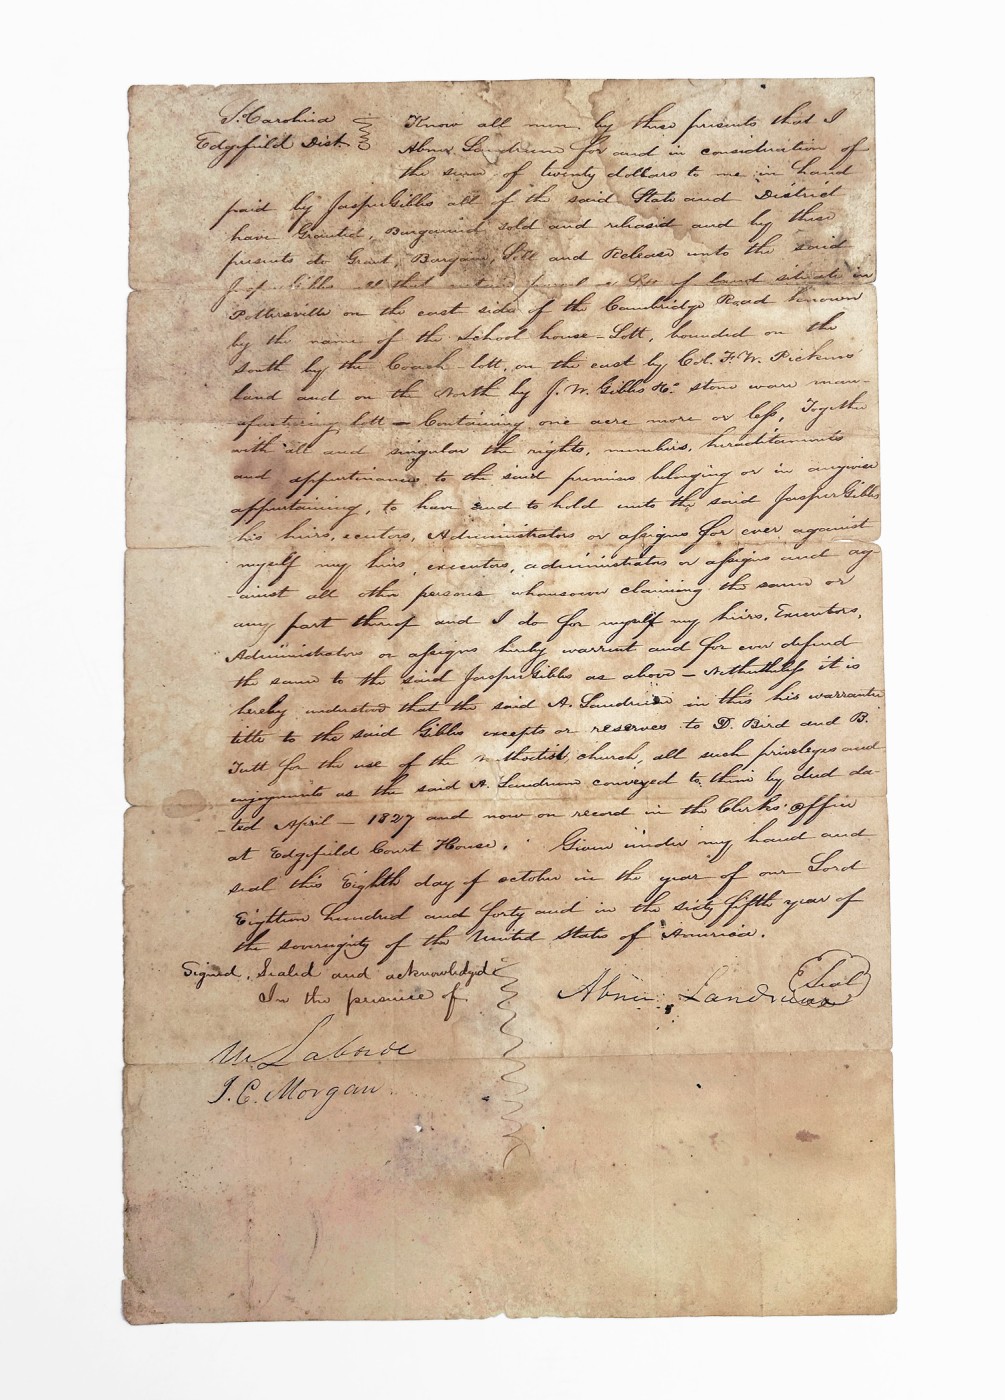 S. Carolina
Edgefield Dist.
Know all men by these presents that I
Abner Landrum for and in consideration of
the sum of twenty dollars to me in hand
paid by Jasper Gibbs all of the said State and District
have Granted, Bargained sold and released and by these
presents do Grant, Bargain, Sell and Release unto the said
Jasper Gibbs all that certain parcel or Lot of land situate in
Pottersville on the east side of the Cambridge Road known
by the name of the School house-Lott, bounded on the
south by the Coach-lott, on the east by Col. F. W. Pickens'
land and on the North by J. W. Gibbs & Co. stone ware man-
ufacturing lott — Containing one acre more or less, Together
with all and singular the rights, members, hereditaments
and appertinances to the said premises belonging or in anywise
appertaining, to have and to hold unto the said Jasper Gibbs
his heirs, ecutors, Administrators or assigns for ever against
myself my heirs, executors, administrators or assigns and ag-
-ainst all other persons whomsoever claiming the same or
any part thereof and I do for myself my heirs, Executors,
Administrators or assigns hereby warrent and for ever defend
the same to the said Jasper Gibbs as above — Nethertheless it is
hereby understood that the said A. Landrum in this his warrantee
title to the said Gibbs excepts or reserves to D. Bird and B.
Tutt for the use of the methodist church, all such priveleges and
enjoyments as the said A. Landrum conveyed to them by deed da-
-ted April — 1827 and now on record in the Clerks' office
at Edgefield Court House. Given under my hand and
seal this Eighth day of october in the year of our Lord
Eighteen hundred and forty and in the sixty fifth year of
the soverignty of the United States of America.
Signed, Sealed and acknowledged
In the presence of
Abner Landrum
Seal
M. Laborde
J. C. Morgan